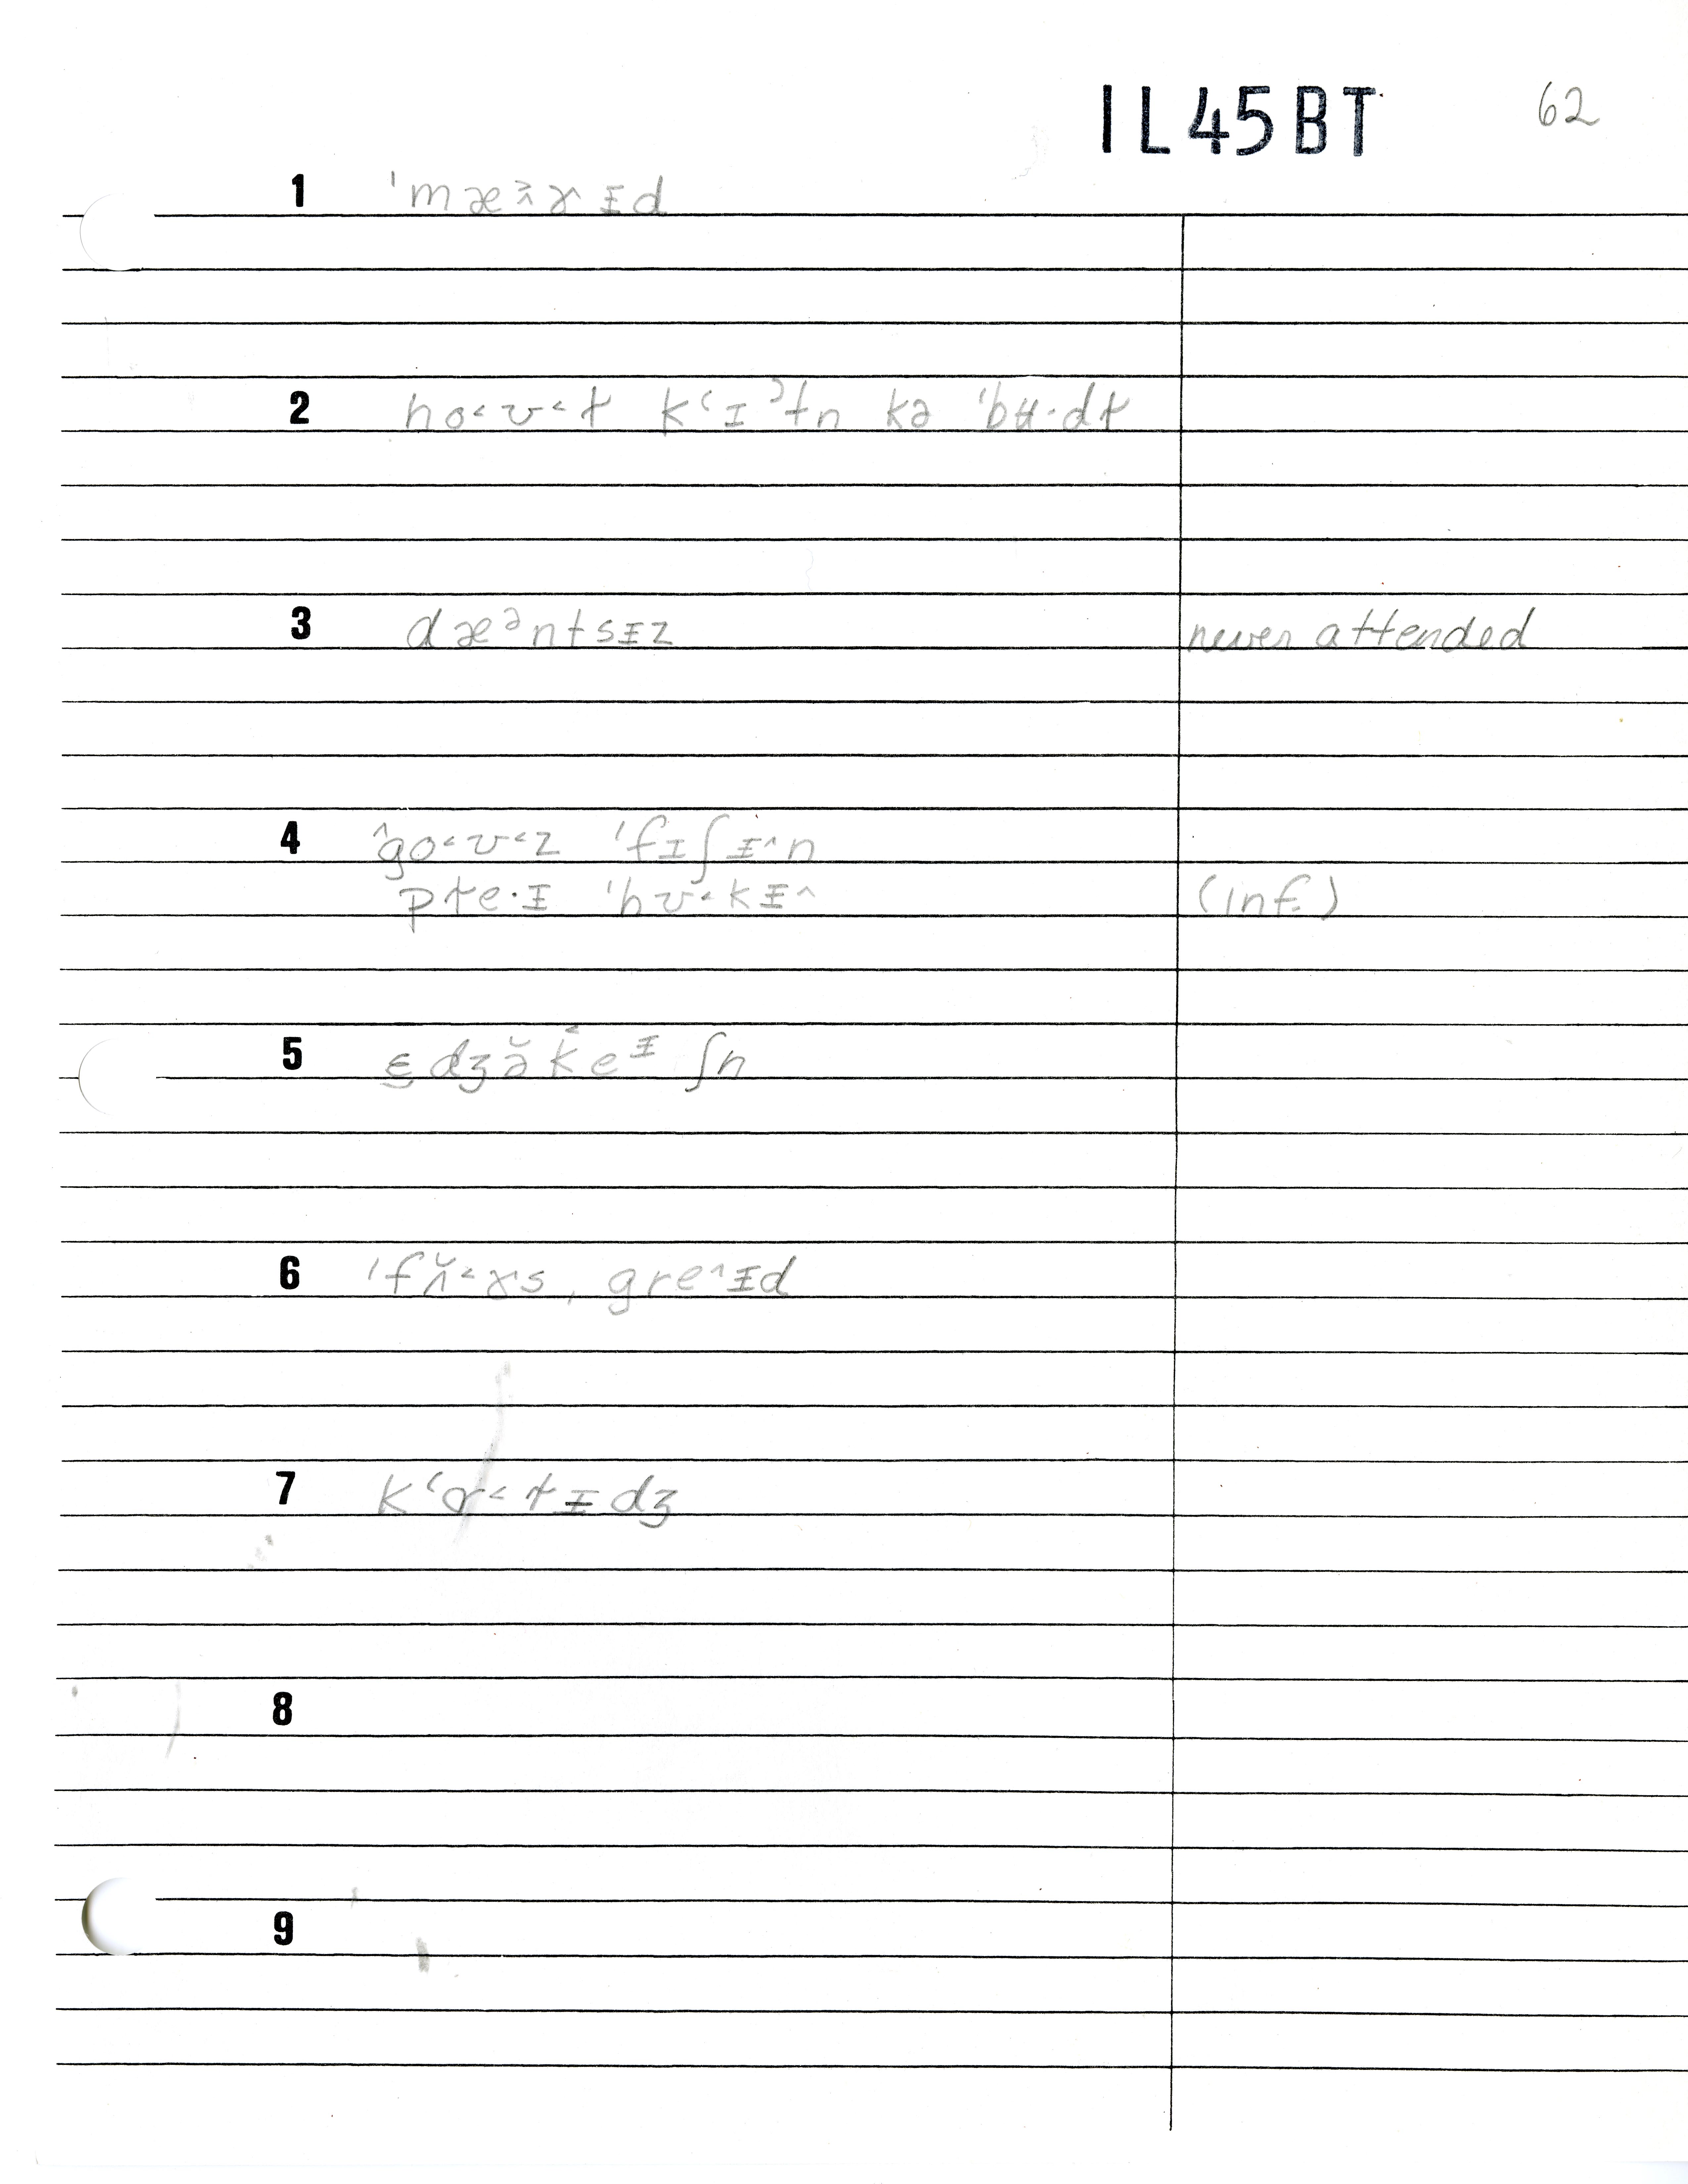 IL45BT 62
1 ˈmæɜ̌ɤɪ̵d
2 ho˂ʊ˂ɫ kʻɪʔtn kə ˈbʉ·dɫ
3 dæᵊntsɪ̵z never attended
4 ˆgo˂ʊ˂z ˈfɪʃɪ̵^n
pɫe·ɪ̵ ˈhʊ˂kɪ̵^ (inf.)
5 ɛ̱dʒə̆k̂eᶦ̵ ʃn
6 ˈfʌ̆˂ɤs, gre^ɪ̵d
7 kʻɑ˂ɫɪ̵dʒ
8
9